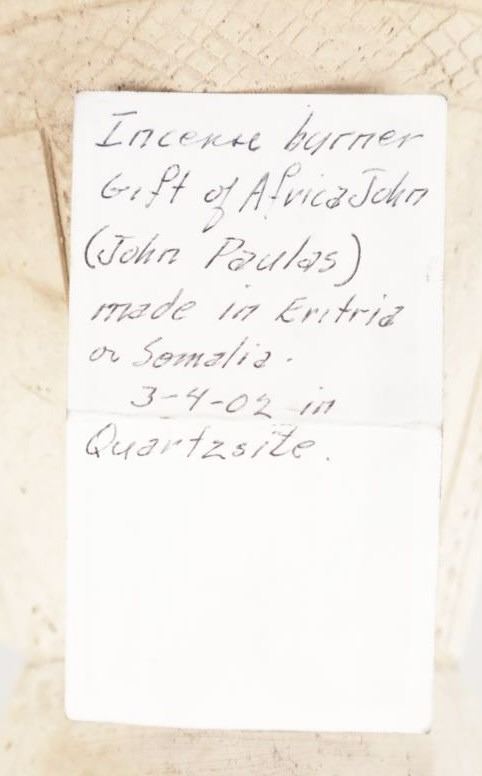 Incense burner
Gift of Africa John
(John Paulas)
made in Eritria
or Somalia.
3-4-02 in
Quartzsite.